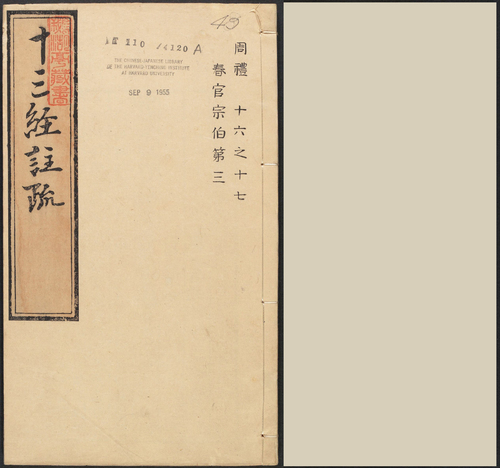 45
周禮 十六之十七
春官宗伯第三
110 /4120 A
THE CHINESE-JAPANESE LIBRARY
OF THE HARVARD-YENCHING INSTITUTE
AT HARVARD UNIVERSITY
SEP 9 1955
十三經註疏